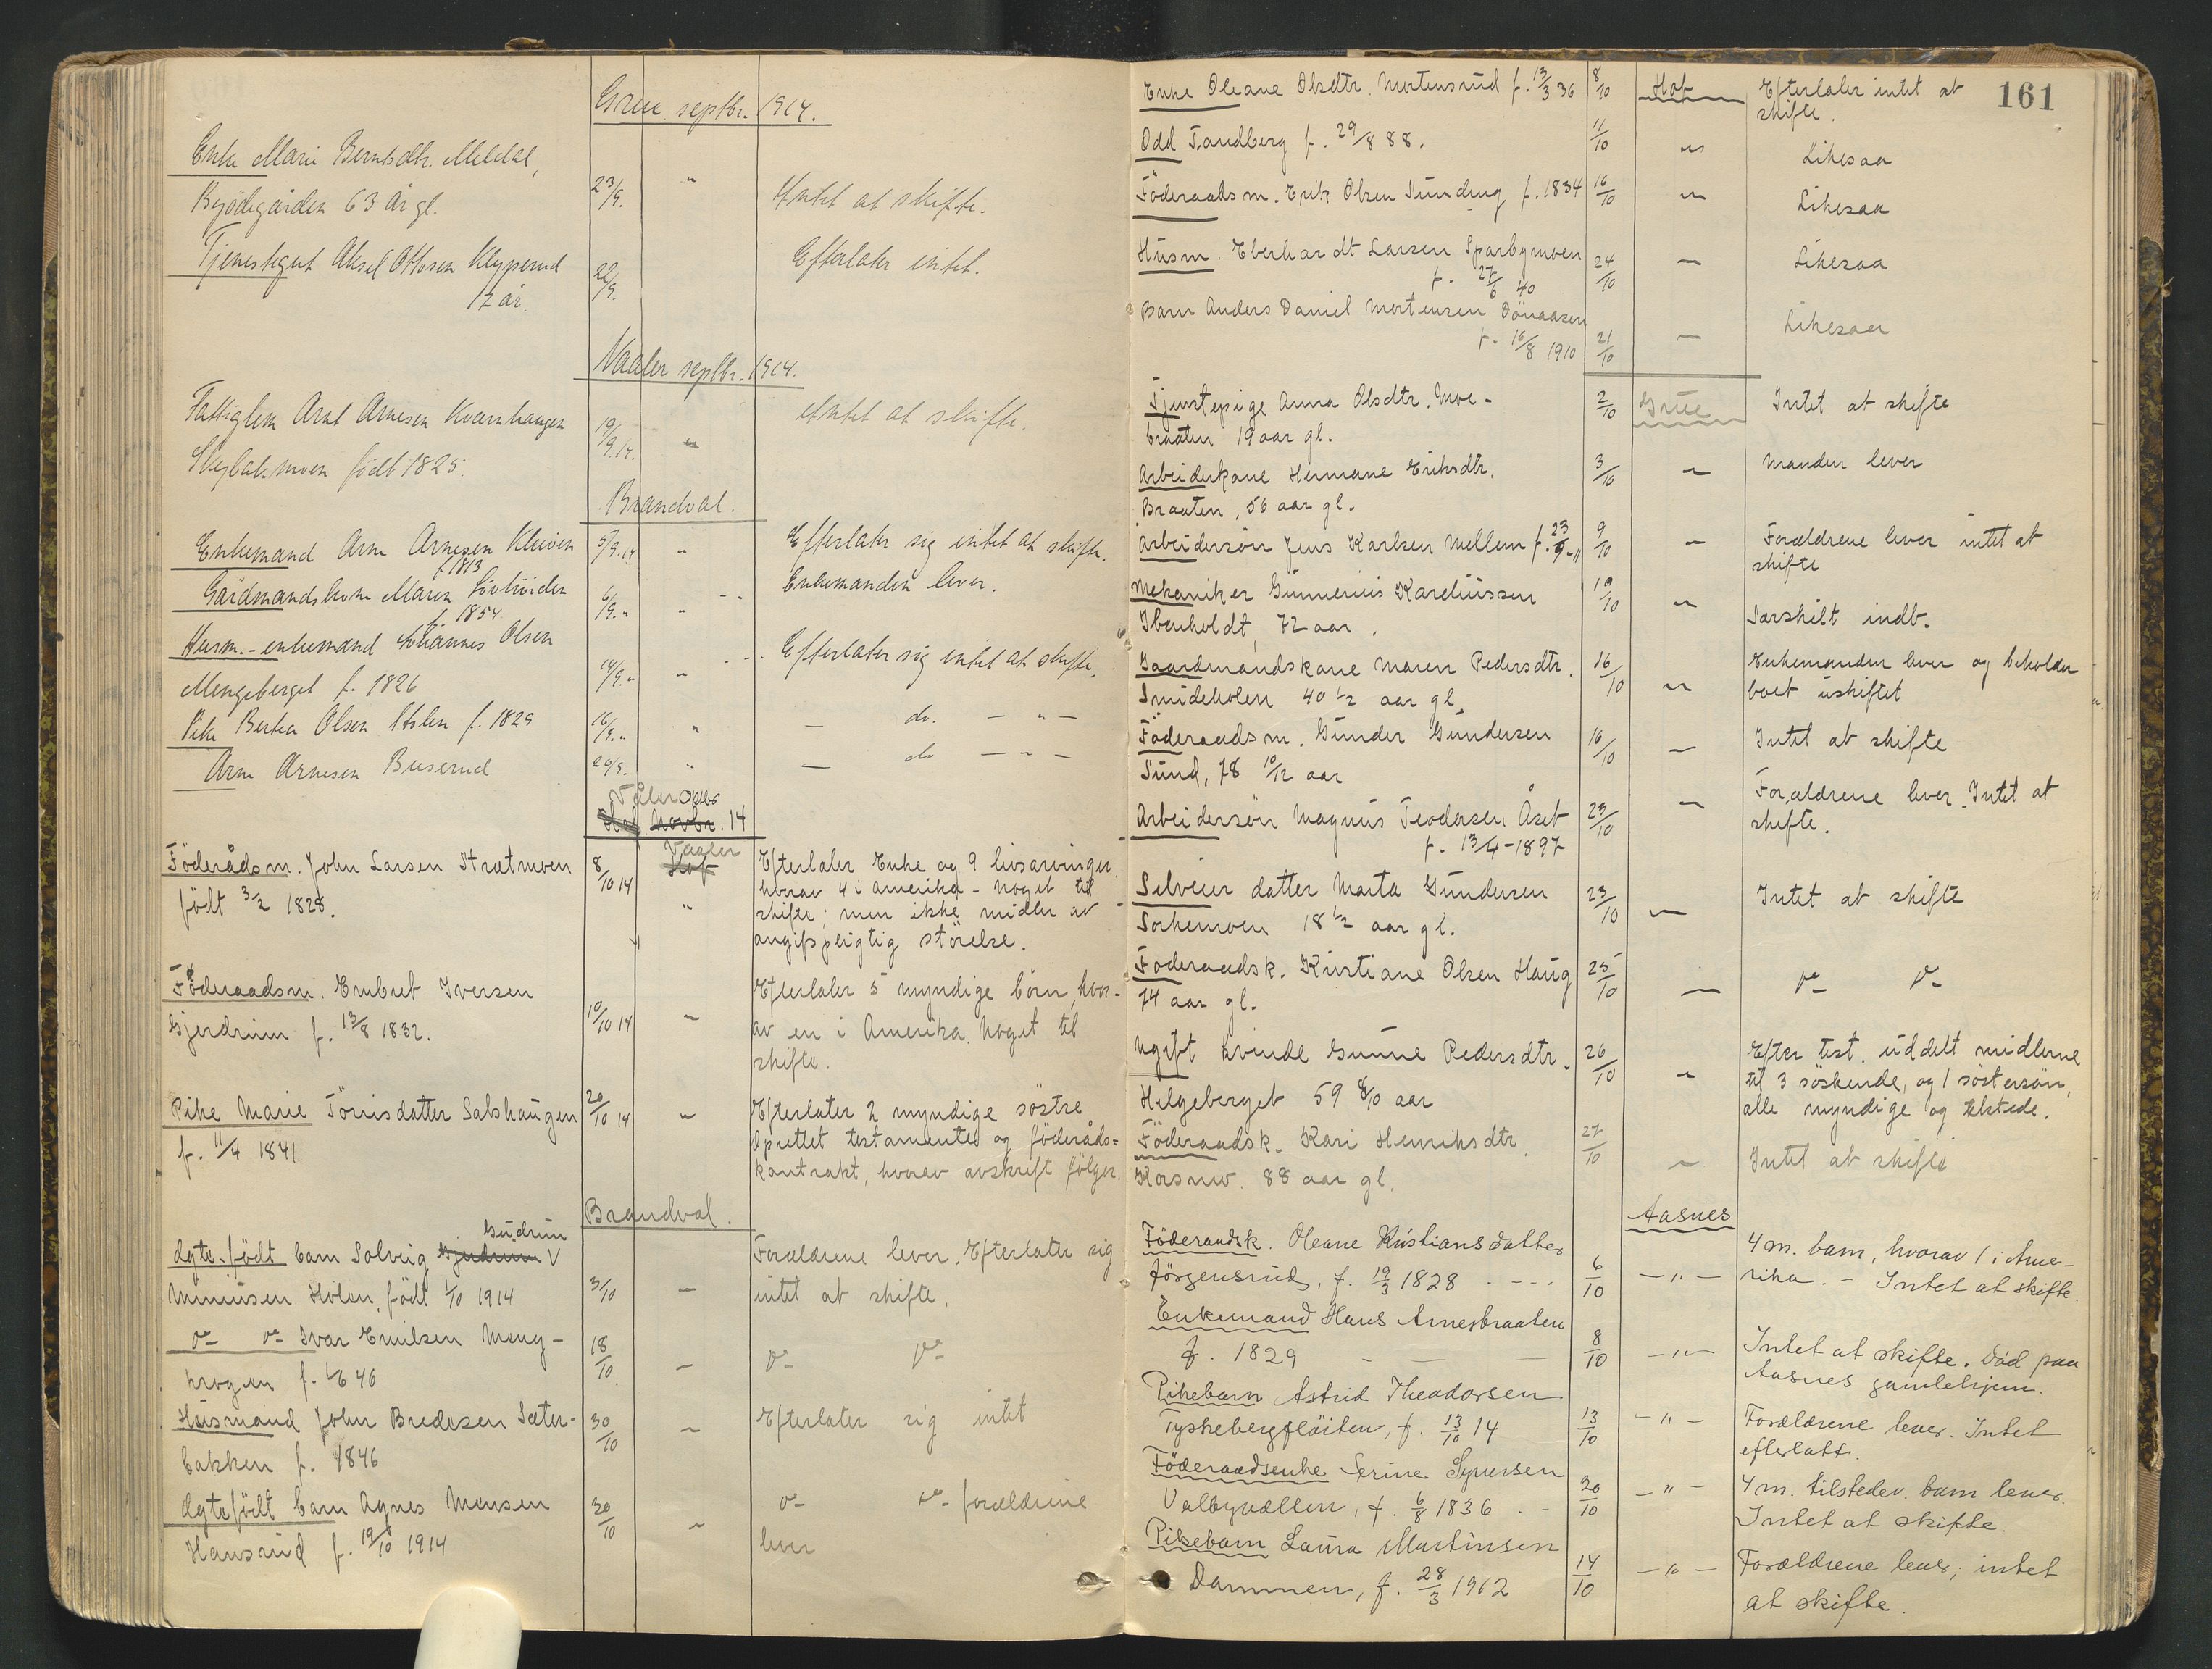 Grue septbr. 1914.
Enke Marie Berntsdtr. Meldal,
Bejödegården 63 år gl. 23/9. " Intet at skifte.
Tjenestegut Aksel Ottosen Klypernd
17 år. 22/9. Efterlater intet.
Vaaler septbr. 1914.
Fattiglem Arnt Arnesen Kvernhaugen 19/9.14. " Intet at skifte.
født 1825.
Brandval.
Enkemand Arne Arnesen Kleiven 5/9.14 " Efterlater sig intet at skifte.
f. 1813
Gårdmandskone Maren 6/9. " " - - Enkemanden lever.
f. 1854
Husm. - enkemand Johannes Olsen
Mengeberget f. 1826 14/9. " " - - Efterlater sig intet at skifte.
Pike Bertea Olsen f. 1829 16/9. " " — do. — " —
Arne Arnesen Buserud 20/9. " — do — " —
Våler Oktbr
Hof Novbr. 14
Föderådsm. John Larsen Strætmoen 8/10 14 Vaaler Hof Efterlater Enke og 9 livsarvinger
født 3/2 1828. " hvorav 4 i Amerika - noget til
skifte; men ikke midler av
avgiftspligtig størelse.
Föderaadsm. Embret Iversen Efterlater 5 myndige börn, hvor-
Gjerdrum f. 13/8 1832. 10/10 14 " av en i Amerika. Noget til
skifte.
Pike Marie Törrisdatter Salshaugen 20/10 14 " Efterlater 2 myndige söstre
f. 11/4 1841 Oprettet testamente og föderåds-
kontrakt, hvorav avskrift fölger.
Brandval.
Gudrun
Ægte-födt barn Solveig Gjudrum V Forældrene lever. Efterlater sig
Holen, født 1/10 1914 3/10 " intet at skifte.
do do Ivar Emilsen Meng- 18/10 " do do
krogen f. 1/6
Husmand John Bredesen Sæter- 30/10 " Efterlater sig intet
bakken f. 1846
Ægtefödt barn Agnes Monsen 30/10 " do do forældrene
Hansrud f. 19/10 1914 lever
161
Enke Oleane Olsdtr. Mortensrud f. 13/3 36 8/10 Hof Efterlater intet at
skifte.
Odd Tandberg f. 29/8 88. 11/10 " Likesaa
Föderaadsm. Erik Olsen Sunding f. 1834 16/10 " Likesaa
Husm. Eberhardt Larsen Sparbymoen 24/10 " Likesaa
f. 27/6 40
Barn Anders Daniel Mortensen Dönaasen
f. 16/8 1910 21/10 " Likesaa
Tjenstepige Anna Olsdtr. Moe- 2/10 Grue Intet at skifte
braaten 19 aar gl.
Arbeiderkone Hermane Eriksdtr. 3/10 " Manden lever
Braaten, 56 aar gl.
Arbeidersön Jens Karlsen Mellem f. 23/9-11 9/10 " Forældrene lever intet at
skifte
Mekaniker Gunnerius Kareliussen 19/10 " Særskilt indb.
Ibenholdt, 72 aar.
Gaardmandskone Maren Pedersdtr. 16/10 " Enkemanden lever og beholder
Smideholen 40 1/2 aar gl. boet uskiftet
Föderaadsm. Gunder Gundersen 16/10 " Intet at skifte
Sund, 78 10/12 aar
Arbeidersön Magnus Teodorsen Åset 23/10 " Forældrene lever. Intet at
f. 13/4-1897 skifte.
Selveier datter Marta Gundersen 23/10 " Intet at skifte
Sorkemoen 18 1/2 aar gl.
Föderaadsk. Kristiane Olsen Haug 25/10 " do do
74 aar gl.
Ugift kvinde Gunne Pedersdtr. 26/10 " Efter test. uddelt midlerne
Helgeberget 59 8/10 aar til 3 söskende, og 1 söstersön,
alle myndige og tilstede.
Föderaadsk. Kari Henriksdtr. 27/10 " Intet at skifte
88 aar gl.
Aasnes
Föderaadsk. Oleane Kristiansdatter 4 m. barn, hvorav 1 i Ame-
Jörgensrud, f. 19/3 1828 . - - . 6/10 — " — rika. - Intet at skifte.
Enkemand Hans Arnesbraaten
f. 1829 — — — 8/10 — " — Intet at skifte. Död paa
Aasnes gamlehjem.
Pikebarn Astrid Theodorsen
Tyskebergflöiten, f. 13/10 14 13/10 — " — Forældrene lever. Intet
efterlatt.
Föderaadsenke Serine Syversen
Valbyvollen, f. 6/8 1836 . - 20/10 — " — 4 m. tilstedev. barn lever.
Intet at skifte.
Pikebarn Laura Martinsen
Dammen, f. 28/3 1912 14/10 — " — Forældrene lever; intet
at skifte.